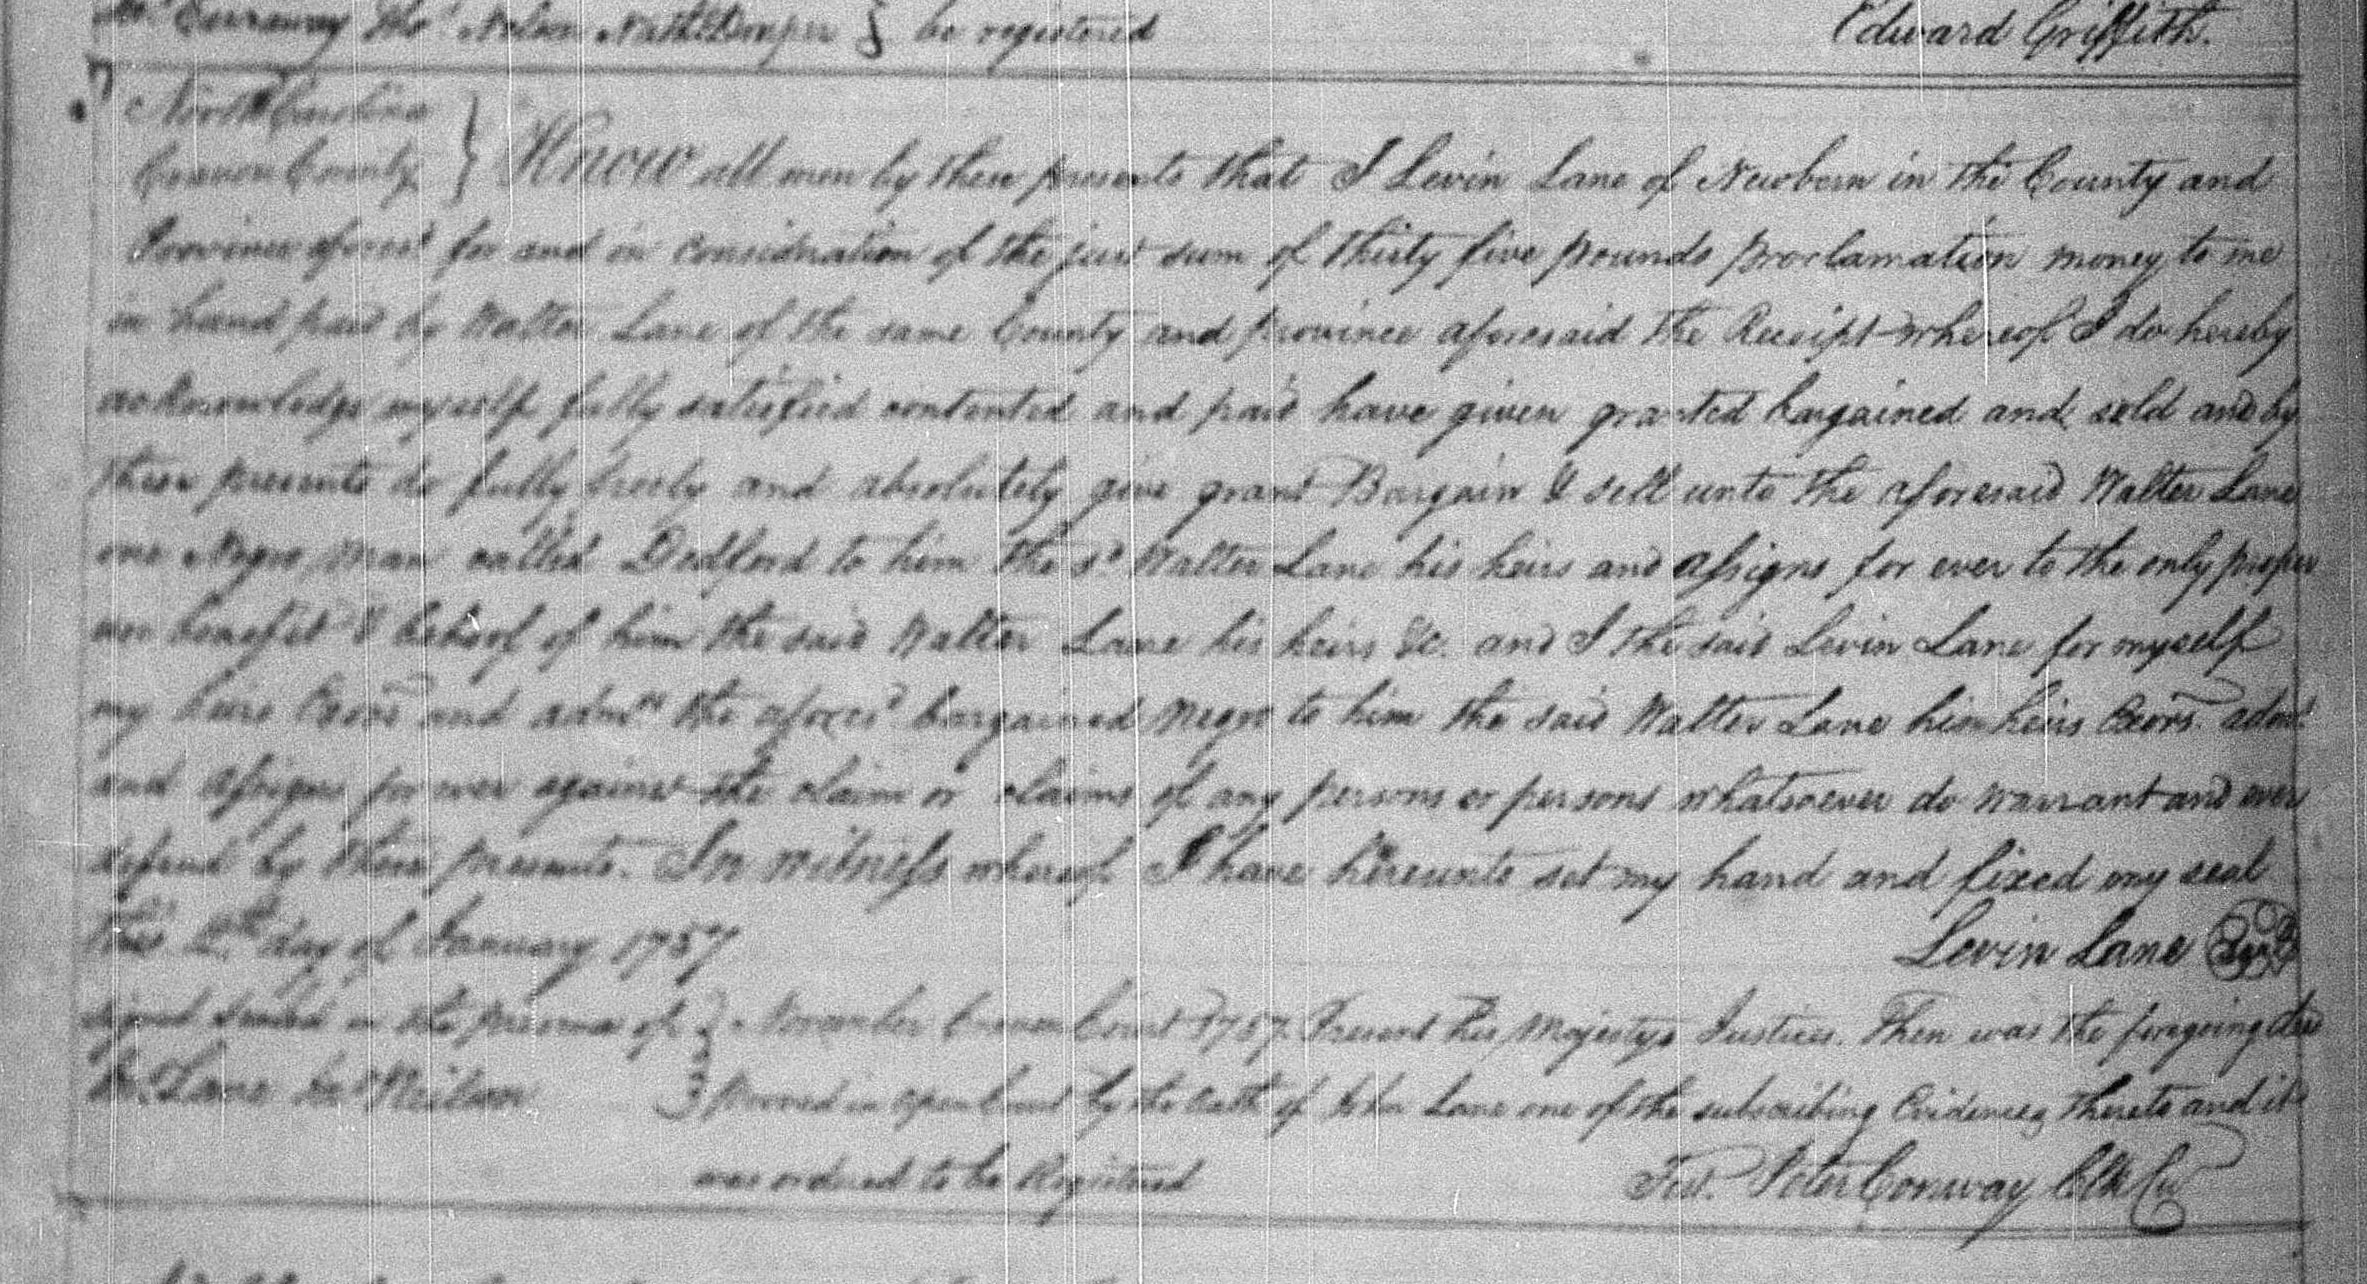 Furaway Thos. Nelson Nathl Draper } be registered Edward Griffith.
North Carolina
Craven County } Know all men by these presents that I Levin Lane of Newbern in the County and
Province aforesd. for and in consideration of the just sum of thirty five pounds proclamation money to me
in hand paid by Walter Lane of the same County and province aforesaid the Receipt whereof I do hereby
acknowledge myself fully satisfied contented and paid have given granted bargained and sold and by
these presents do fully freely and absolutely give grant Bargain & sell unto the aforesaid Walter Lane
one Negro man called Dedford to him the sd. Walter Lane his heirs and assigns for ever to the only proper
use benefit & behoof of him the said Walter Lane his heirs &c. and I the said Levin Lane for myself
my heirs Exors and admrs the aforesd bargained Negro to him the said Walter Lane him heirs Exors. admrs
and assigns for ever against the claim or claims of any persons or persons whatsoever do warrant and ever
defend by these presents. In witness whereof I have hereunto set my hand and fixed my seal
this 2th day of January 1757 Levin Lane Seal
signed sealed in the presence of } November Craven Court 1757. Present his Majestys Justices. Then was the foregoing deed
Lane Neilson } Proved in open Court by the Oath of John Lane one of the subscribing Evidences thereto and it
was ordered to be Registered Test. Peter Conway Clk Cu